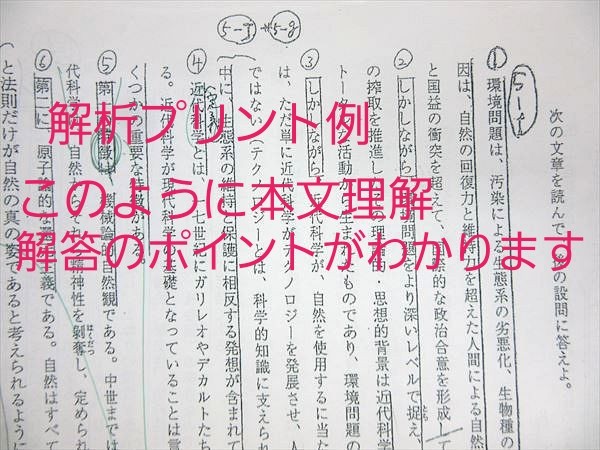 5-J *5-g
5-1
次の文章を読んで、後の設問に答えよ。
① 環境問題は、汚染による生態系の劣悪化、生物種の
因は、自然の回復力と維持力を超えた人間による自然
と国益の衝突を超えて、国際的な政治合意を形成して
② しかしながら、環境問題をより深いレベルで捉え、
の搾取を推進し の理論的・思想的背景は近代科学
トータルな活動から生まれたものであり、環境問題の
③ しかしながら、近代科学が、自然を使用するに当た
は、ただ単に近代科学がテクノロジーを発展させ、人
ではない（テクノロジーとは、科学的知識に支えられ
中に、生態系の維持と保護に相反する発想が含まれて
定義
④ 近代科学とは、一七世紀にガリレオやデカルトたち
る。近代科学が現代科学の基礎となっていることは言
くつかの重要な特徴がある。
⑤ 第一の特徴は、機械論的自然観である。中世までは
代科学は、自然からそれ 精神性を剝奪し、定められ
はくだつ
⑥ 第二に、原子論的な還元主義である。自然はすべて
と法則だけが自然の真の姿であると考えられるように
解析プリント例
このように本文理解
解答のポイントがわかります